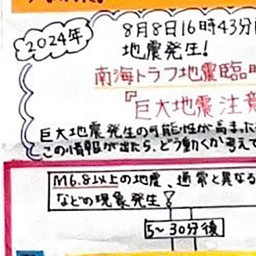 2024年
8月8日16時43分
地震発生!
南海トラフ地震臨時
『巨大地震注意
巨大地震発生の可能性が高まった
この情報が出たら、どう動くか考えて
M6.8以上の地震、通常と異なる
などの現象発生
5~30分後